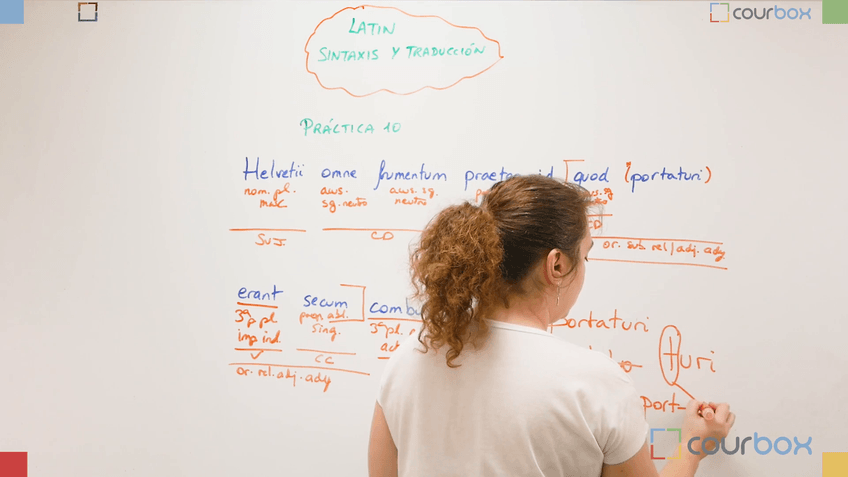 courbox
LATIN
SINTAXIS Y TRADUCCIÓN
PRÁCTICA 10
Helvetii omne frumentum quod (portaturi)
nom. pl. sg. neutro neutro
masc
SUJ CD CD or. sub. rel/adj. ady
erant secum
3ª pl pron. abl. 3ª pl.
imp ind. sing. act
V CC
or. rel. adj. ady
portaturi
turi
port-
courbox